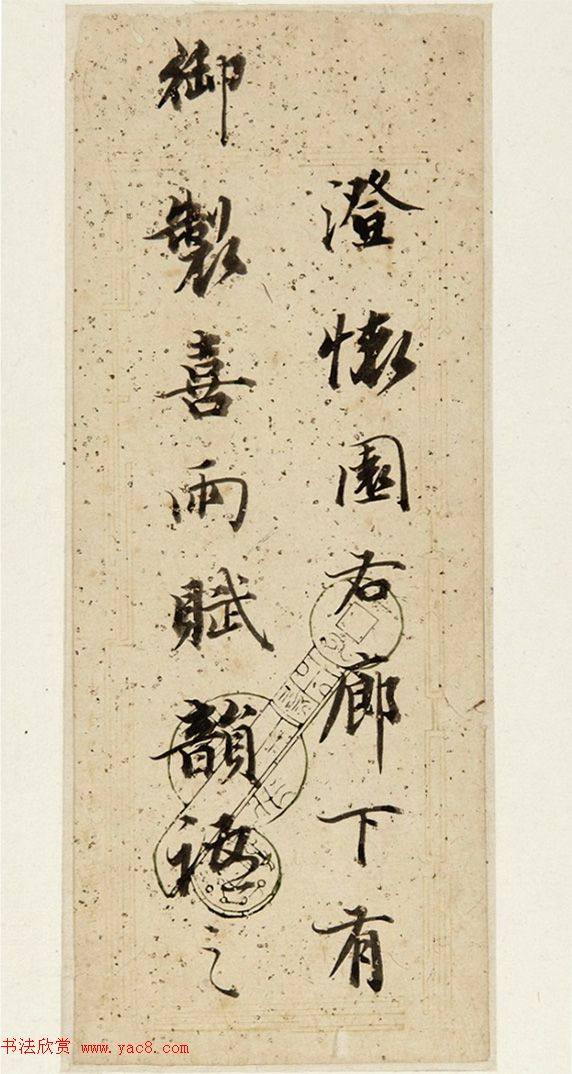 澄懷園右廊下有
御製喜雨賦韻
之
书法欣赏 www.yac8.com